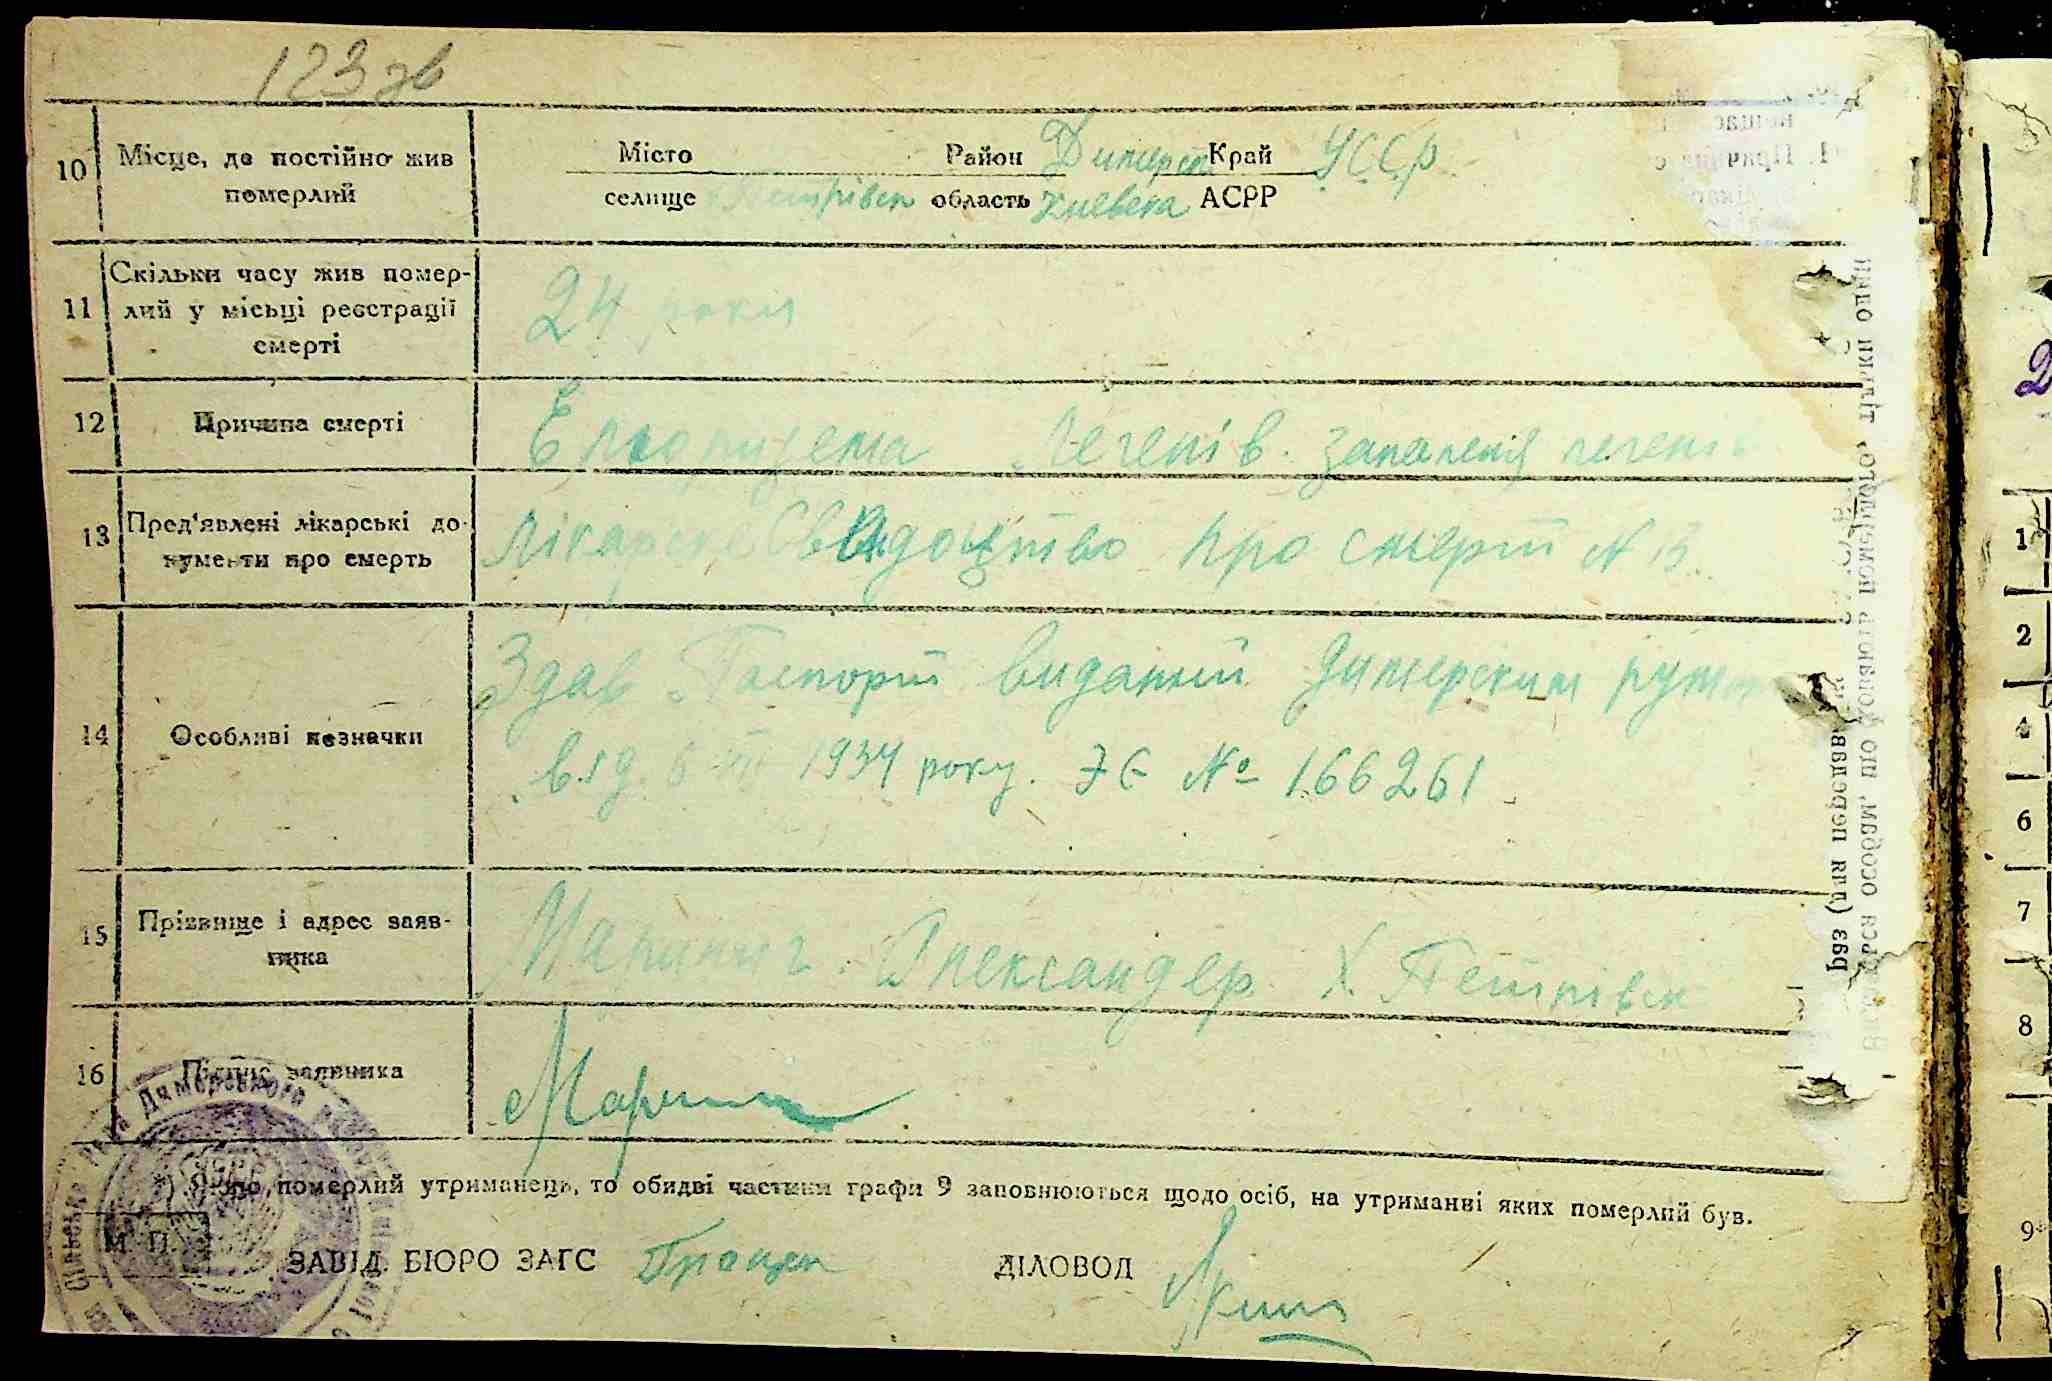 123 зв
10 Місце, де постійно жив померлий
Місто Район Димерск Край УССР
селище Петрівск область Киевска АСРР
11 Скільки часу жив помер-
лий у місьці реєстрації
смерті
24 роки
12 Причина смерті
легенів. запаленя легенів
13 Пред'явлені лікарські до-
кументи про смерть
Лікарске Свидоцтво про смерт № 13.
14 Особливі незначки
Здав Паспорт виданий Димерским
від 6 1934 року. ЭЄ № 166261
15 Прізвище і адрес заяв-
ника
Маринич Александер. Х. Петрівск
16 Підпис заявника
Марин
померлий утриманець, то обидві частини графи 9 заповнюються щодо осіб, на утриманні яких померлий був.
М. П.
ЗАВІД. БЮРО ЗАГС ДІЛОВОД
Димерського
1
2
4
6
7
8
9